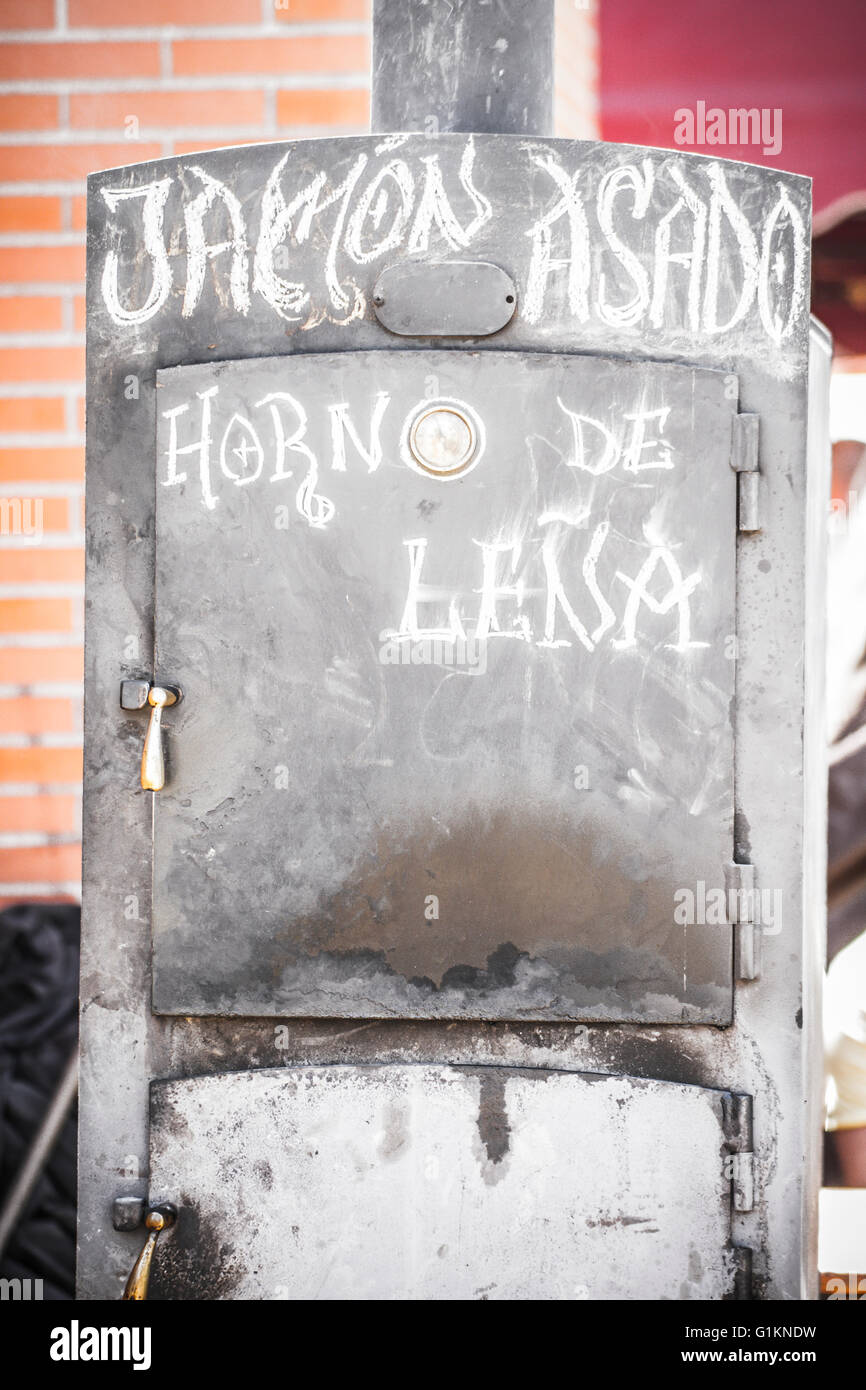 JAMÓN ASADO
HORNO DE
LEÑA
alamy
Image ID: G1KNDW
www.alamy.com